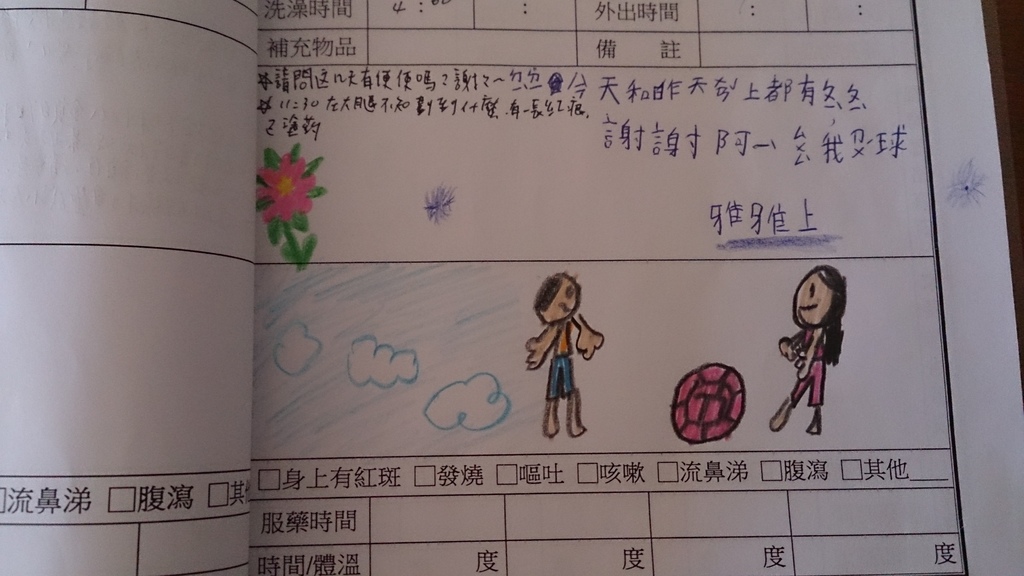 洗澡時間 4:00 : 外出時間 : :
補充物品 備 註
請問這几天有便便嗎?謝謝~
今天和昨天晚上都有
11:30 在大腿不知劃到什麼,有一長紅痕,
已塗葯
謝謝阿 我 球
雅雅上
□身上有紅斑 □發燒 □嘔吐 □咳嗽 □流鼻涕 □腹瀉 □其他___
流鼻涕 □腹瀉 □其
服藥時間
時間/體溫 度 度 度 度